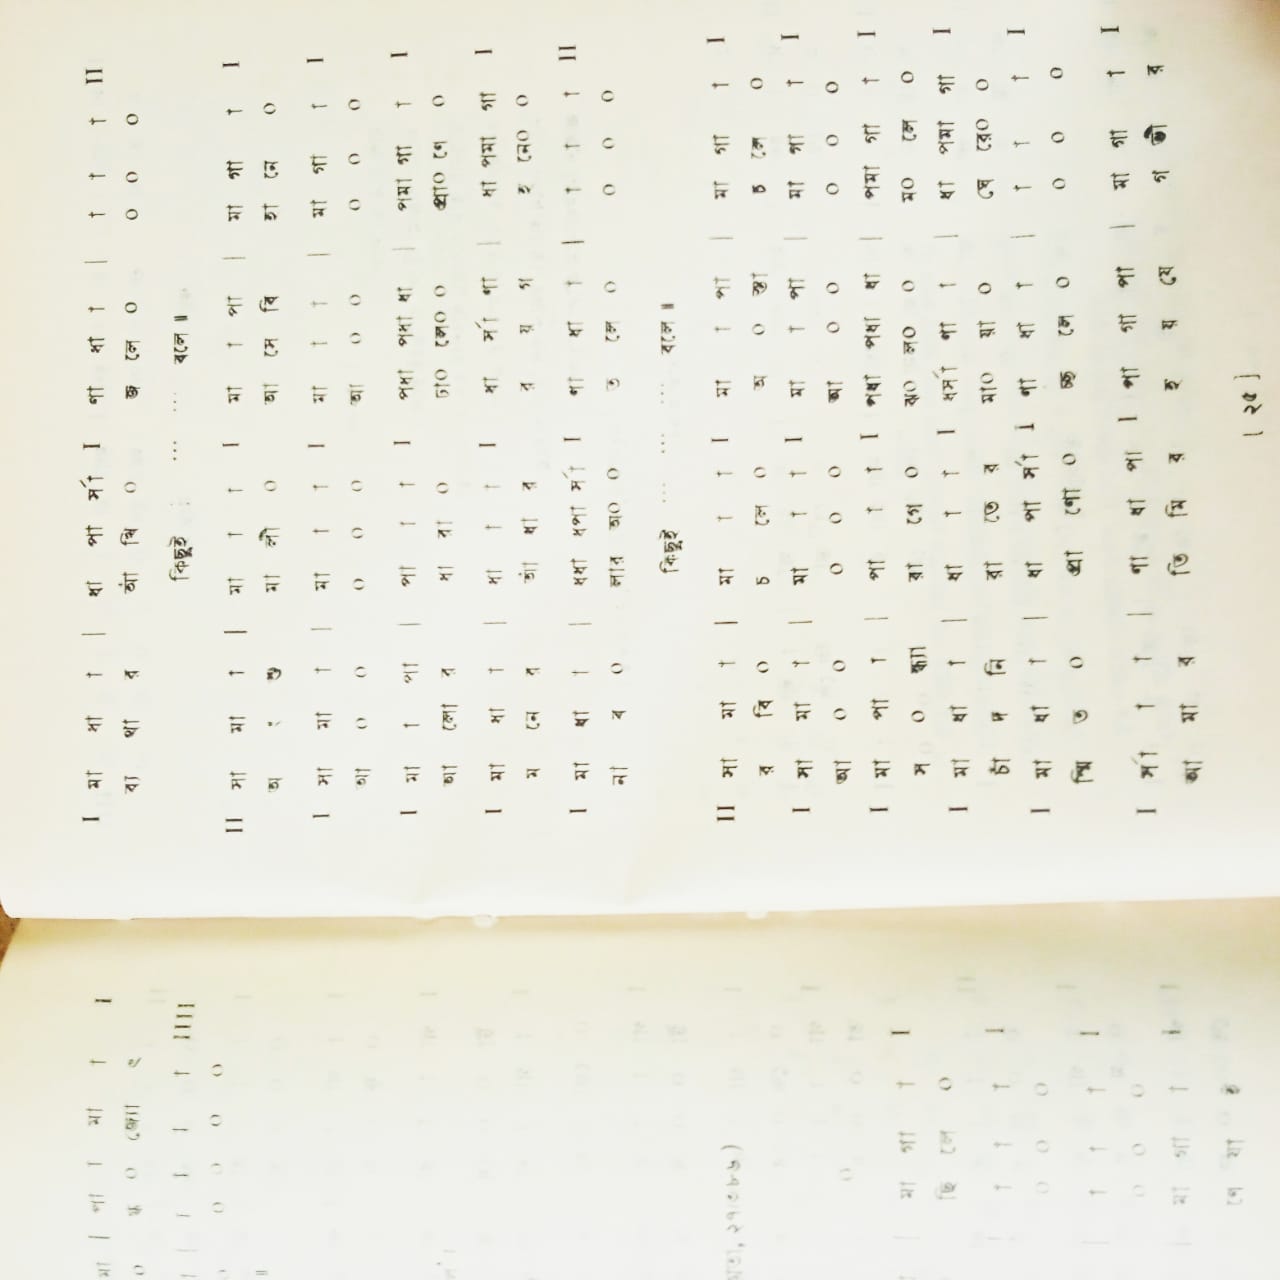 I মা ধা া | ধা পা র্সা I ণা ধা া | া া া II
ব্য থার আঁ খি ০ জ লে ০ ০ ০ ০
কিছুই ... ... বলে ॥
II সা মা া | মা া া I মা া পা | মা গা া I
অ ং শু মা লী ০ আ সে বি হা নে ০
I সা মা া | মা া া I মা া া | মা গা া I
আ ০ ০ ০ ০ ০ আ ০ ০ ০ ০ ০
I মা া পা | পা া া I পধা পধা ধা | পমা গা া I
আ লো র ধা রা ০ ঢা০ লে০ ০ প্রা০ ণে ০
I মা ধা া | ধা া া I ধা র্সা ণা | ধা পমা গা I
ম নে র আঁ ধা র র য় গ হ নে০ ০
I মা ধা া | ধধা ধপা র্সা I ণা ধা া | া া া II
না ব ০ লার অ০ ০ ত লে ০ ০ ০ ০
কিছুই ... ... বলে ॥
II সা মা া | মা া া I মা া পা | মা গা া I
র বি ০ চ লে ০ অ ০ স্তা চ লে ০
I সা মা া | মা া া I মা া পা | মা গা া I
আ ০ ০ ০ ০ ০ আ ০ ০ ০ ০ ০
I মা পা া | পা া া I পধা পধা ধা | পমা গা া I
স ০ ন্ধ্যা রা গে ০ ঝ০ ল০ ০ ম০ লে ০
I মা ধা া | ধা া া I ধর্সা ণা া | ধা পমা গা I
চাঁ দ নি রা তে র মা০ য়া ০ ঘে রে০ ০
I মা ধা া | ধা পা র্সা I ণা ধা া | া া া I
স্মি ত ০ প্রা ণো ০ চ্ছ লে ০ ০ ০ ০
I র্সা া া | ণা ধা পা I পা গা পা | মা গা া I
আ মা র তি মি র হ য় যে গ ভী র
[ ২৫ ]
মা | পা া মা া I
০ ন্ধ ০ জ্যো ৎ
| া া া া IIII
০ ০ ০ ০ ০
॥
| মা গা া I
ছি লে ০
| া া া I
০ ০ ০
| া া া I
০ ০ ০
| মা গা া I